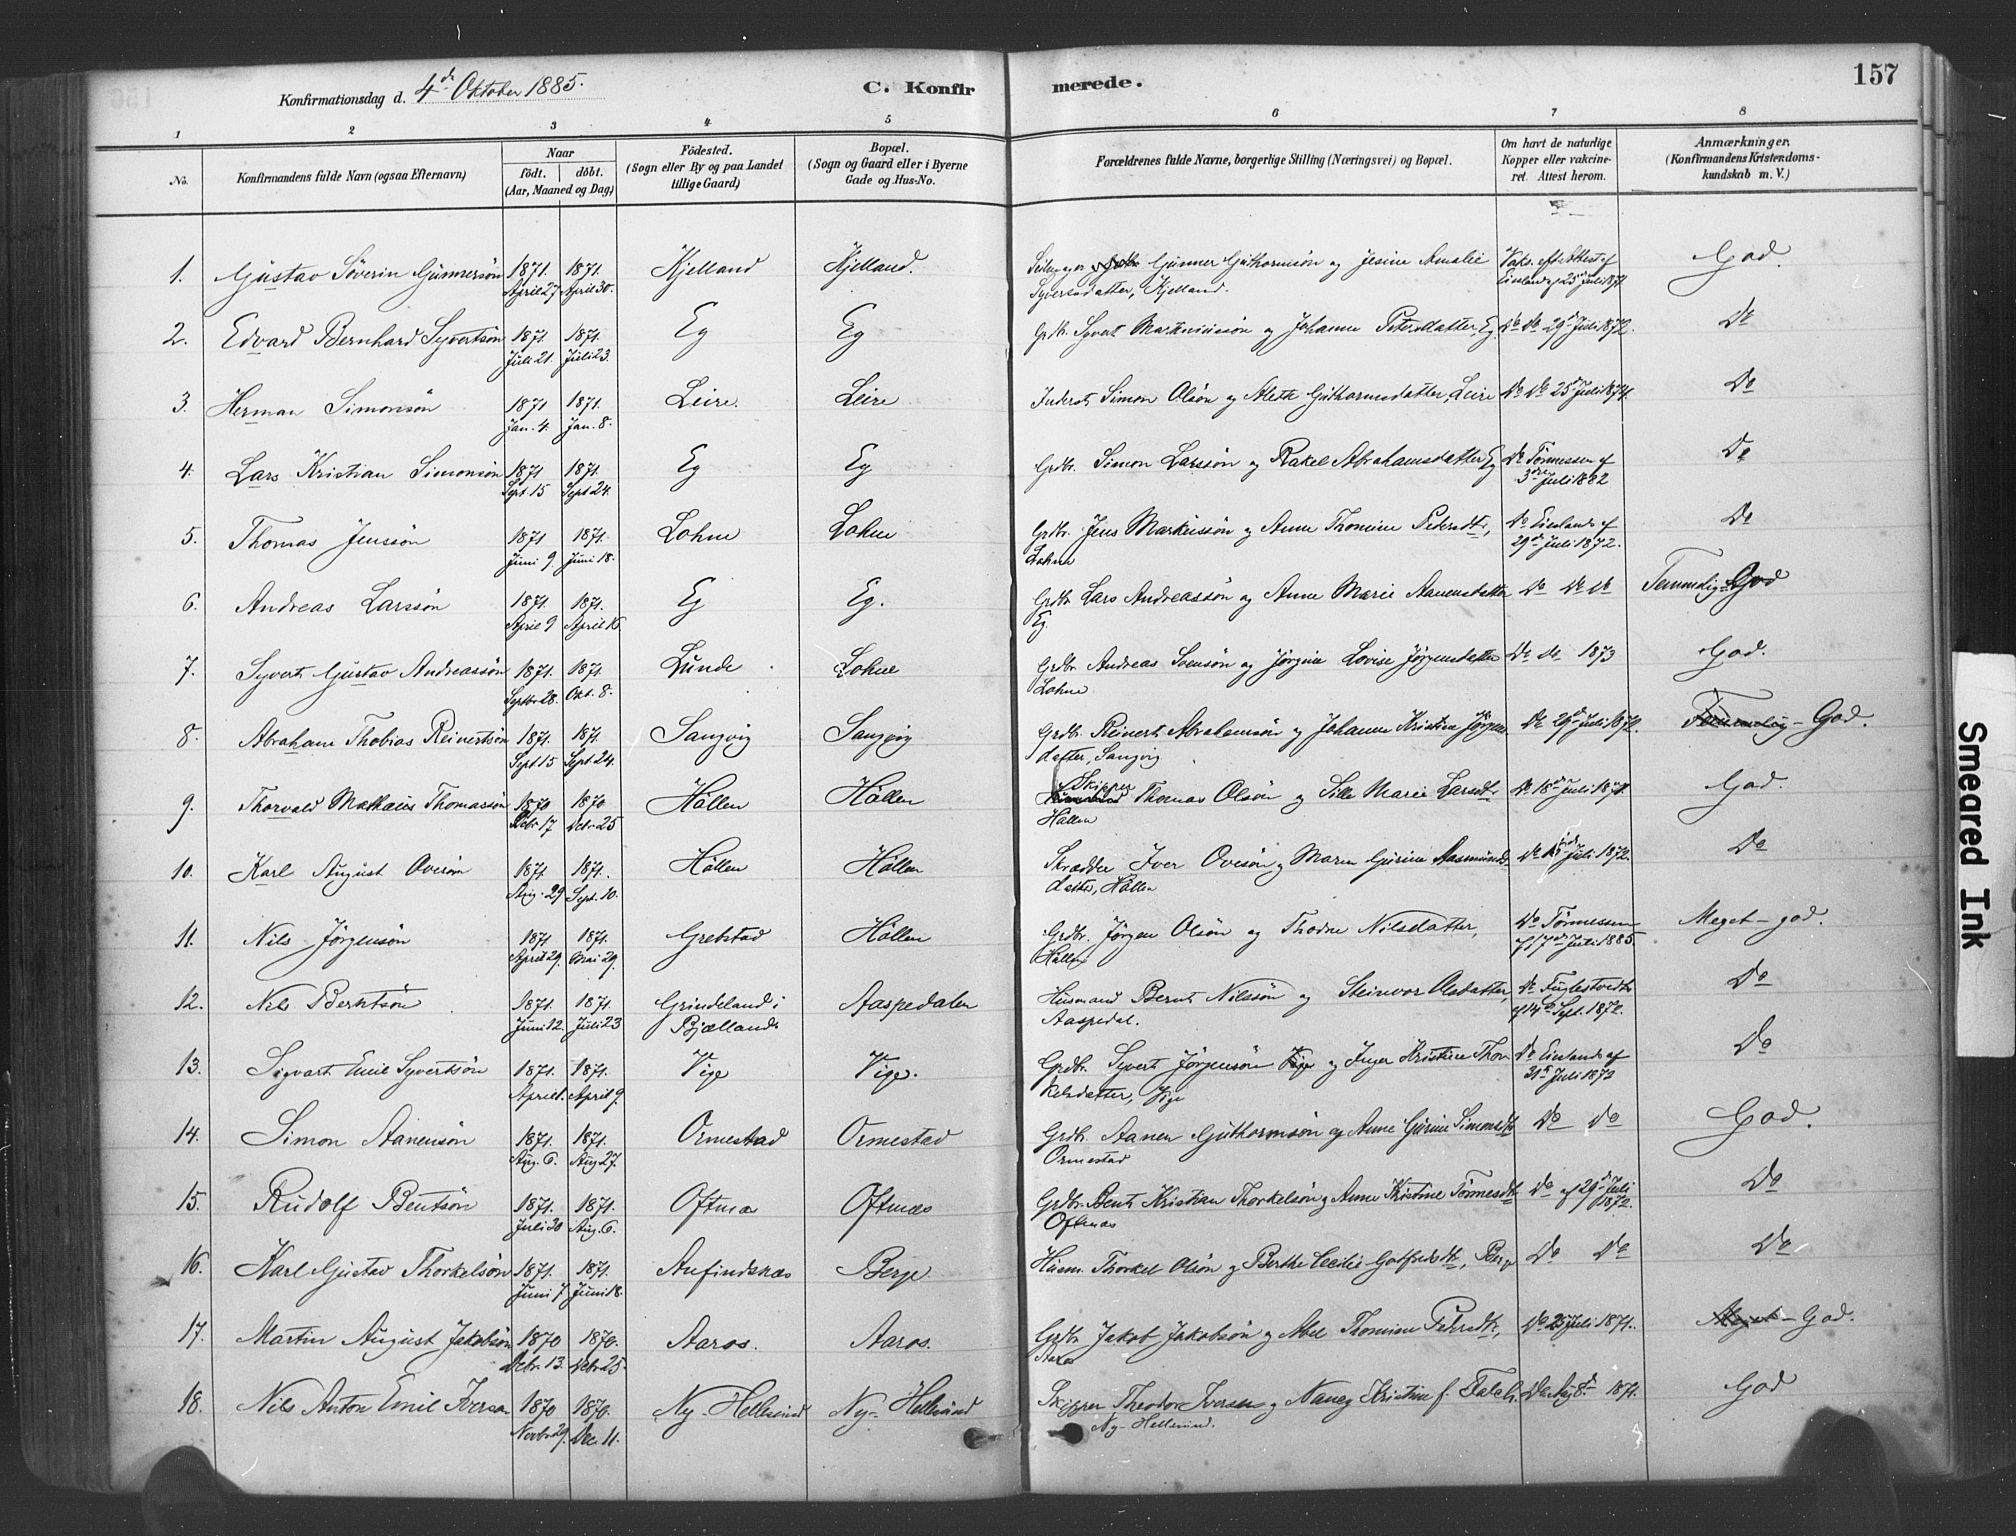 Konfirmationsdag d. 4de Oktober 1885.
C. Konfirmerede.
157
1 2 3 4 5 6 7 8
No.
Konfirmandens fulde Navn (ogsaa Efternavn)
Naar
født. døbt.
(Aar, Maaned og Dag)
Födested.
(Sogn eller By og paa Landet
tillige Gaard)
Bopæl.
(Sogn og Gaard eller i Byerne
Gade og Hus-No.
Forældrenes fulde Navne, borgerlige Stilling (Næringsvei) og Bopæl.
Om havt de naturlige
Kopper eller vakcine-
ret. Attest herom.
Anmærkninger.
(Konfirmandens Kristendoms-
kundskab m. V.)
1. Gustav Söverin Gunnersön 1871. 1871. Kjelland Kjelland. Gunner Guthormsön og Jesine Amalie Vaks. Attest af God.
April 27 April 30. Syvertsdatter, Kjelland. 25 Juli 1871
2. Edvard Bernhard Syvertsön 1871. 1871. Eg Eg Grdb. Syvert Markussön og Johanne Petersdatter Eg. Do Do 29de Juli 1872. Do
Juli 21. Juli 23.
3. Herman Simonsön 1871 1871. Leire. Leire Inderst Simon Olsön og Alette Guthormsdatter, Leire Do Do 25de Juli 1874. Do
Jan. 4. Jan. 8.
4. Lars Kristian Simonsön 1871 1871. Eg Eg Grdbr. Simon Larssön og Rakel Abrahamsdatter Eg Do Tönnessen af Do
Sept. 15 Sept 24. 3die Juli 1882
5. Thomas Jenssön 1871 1871. Lohne Lohne Grdbr. Jens Markussön og Anne Thomine Pedersdtr, Do af Do
Juni 9 Juni 18. Lohne 29de Juli 1872.
6. Andreas Larssön 1871. 1871. Eg Eg. Grdbr Lars Andreassön og Anne Marie Aanensdatter Do Do Do Temmelig God
April 9 April 16. Eg.
7. Syvert Gustav Andreassön 1871. 1871. Lunde Lohne Grdbr. Andreas Svensön og Jörgine Lovise Jörgensdatter Do do 1873 God.
Septbr 28. Okt. 8. Lohne
8. Abraham Thobias Reinertsön 1871. 1871. Sangvig Sangvig Grdbr. Reinert Abrahamsön og Johanne Kristine Jörgens- Do 29de Juli 1872. Temmelig - God.
Sept 15 Sept. 24. datter, Sangvig
9. Thorvald Mathæus Thomassön 1870 1870 Höllen Höllen Skipper Thomas Olsön og Sille Marie Larsdtr Do 18de Juli 1871. God.
Debr 17 Debr 25 Höllen
10. Karl August Ovesön 1871 1871. Höllen Höllen Skrædder Iver Ovesön og Maren Gurine Aasmunds- Do Juli 1872. Do
Aug. 29 Sept. 10. datter, Höllen
11. Nils Jörgensön 1871 1871. Grebstad Höllen Grdbr. Jörgen Olsön og Thodne Nilsdatter, Do Tönnessen Meget - god.
April 29. Mai 29. Höllen af 17de Juli 1885.
12. Nils Berntsön 1871. 1871. Grindeland i Aaspedalen Husmand Bernt Nilssön og Steinvor Olsdatter, Do Fuglestvedt Do
Juni 12. Juli 23 Bjelland Aaspedal. af 14de Sept. 1872.
13. Sigvart Emil Syvertsön 1871. 1871. Vige Vige. Grdbr. Syvert Jörgensön og Inger Kristine Thor Do af Do
April 1. April 9. kelsdatter, Vige 31te Juli 1872
14. Simon Aanensön 1871. 1871. Ormestad Ormestad Grdbr. Aanen Guthormsön og Anne Gurine Simonsdtr Do Do God.
Aug. 6. Aug 27. Ormestad
15. Rudolf Bentsön 1871. 1871. Oftnæs Oftnæs Grdbr. Bent Kristian Thorkelsön og Anne Kristine Tönnesdtr Do af 29de Juli Do
Juli 20 Aug. 6. Oftenæs 1872.
16. Karl Gustav Thorkelsön 1871. 1871. Anfindsnæs Berge Husm. Thorkel Olsön og Berthe Cecilie Gotfredsdtr, Berge Do Do Do
Juni 7 Juni 18.
17. Martin August Jakobsön 1870 1870. Aaros. Aaros. Grdbr. Jakob Jakobsön og Abel Thomine Pedersdtr, Do 25 Juli 1871. Meget - God.
Debr. 13. Debr 25. Aaros
18. Nils Anton Emil Iversen 1870 1870. Ny-Hellesund Ny-Hellesund Skipper Theodor Iversen og Nancy Kristine f. Falch. Do Aug 8de 1871. God
Novbr 29. Dec. 11. Ny-Hellesund.
Smeared Ink